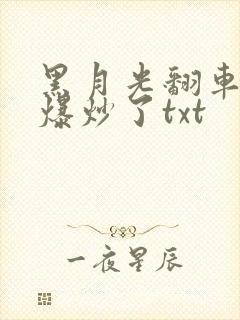 黑月光翻车
爆炒了txt
一夜星辰